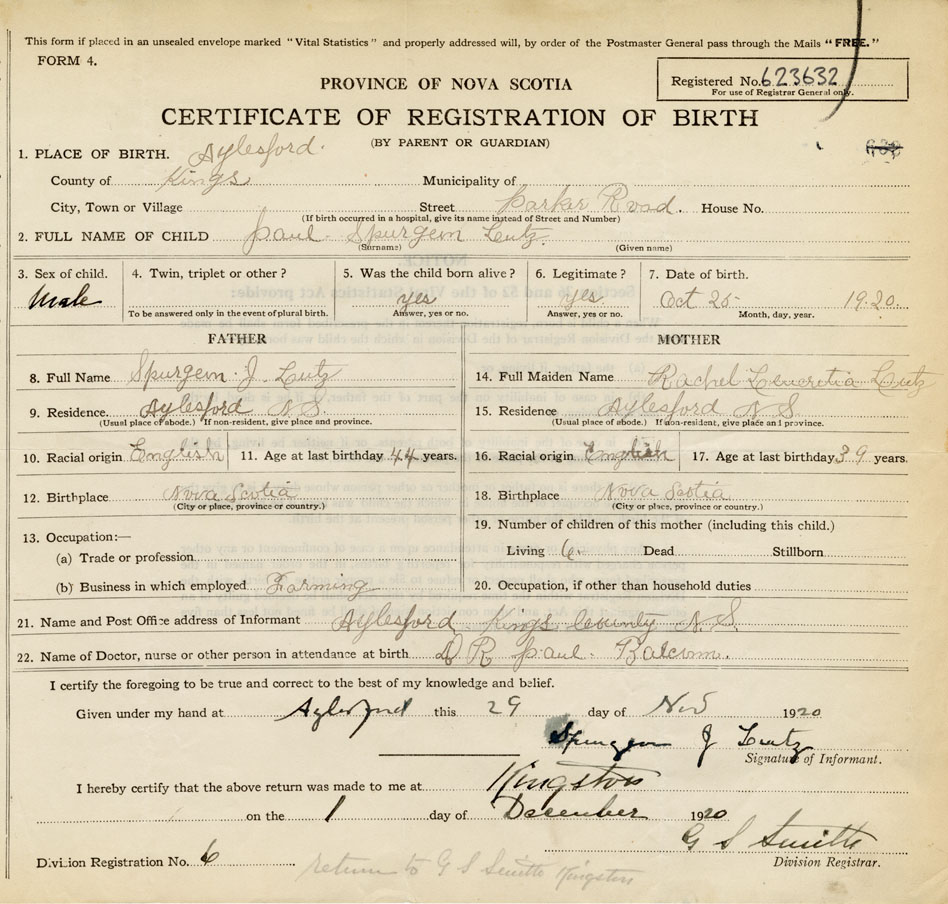 This form if placed in an unsealed envelope marked "Vital Statistics" and properly addressed will, by order of the Postmaster General pass through the Mails "FREE."
FORM 4.
Registered No. 623632
For use of Registrar General only.
PROVINCE OF NOVA SCOTIA
CERTIFICATE OF REGISTRATION OF BIRTH
(BY PARENT OR GUARDIAN)
1. PLACE OF BIRTH. Aylesford.
County of Kings Municipality of
City, Town or Village Street Parker Road. House No.
(If birth occurred in a hospital, give its name instead of Street and Number)
2. FULL NAME OF CHILD Paul Spurgeon Lutz.
(Surname) (Given name)
3. Sex of child. 4. Twin, triplet or other? 5. Was the child born alive? 6. Legitimate? 7. Date of birth.
Male yes yes. Oct 25 1920.
To be answered only in the event of plural birth. Answer, yes or no. Answer, yes or no. Month, day, year.
FATHER MOTHER
8. Full Name Spurgeon J. Lutz 14. Full Maiden Name Rachel Lucretia Lutz
9. Residence. Aylesford N.S. 15. Residence Aylesford N S
(Usual place of abode.) If non-resident, give place and province. (Usual place of abode.) If non-resident, give place and province.
10. Racial origin English 11. Age at last birthday 44 years. 16. Racial origin English 17. Age at last birthday 39 years.
12. Birthplace Nova Scotia 18. Birthplace Nova Scotia
(City or place, province or country.) (City or place, province or country.)
13. Occupation:— 19. Number of children of this mother (including this child.)
(a) Trade or profession Living 6. Dead Stillborn
(b) Business in which employed Farming 20. Occupation, if other than household duties
21. Name and Post Office address of Informant Aylesford Kings County N.S.
22. Name of Doctor, nurse or other person in attendance at birth DR Paul Balcom.
I certify the foregoing to be true and correct to the best of my knowledge and belief.
Given under my hand at Aylesford this 29 day of Nov 1920
Spurgeon J Lutz
Signature of Informant.
I hereby certify that the above return was made to me at Kingston
on the 1 day of December 1920
G S Smith
Division Registration No. 6 Division Registrar.
return to G S Smith Kingston